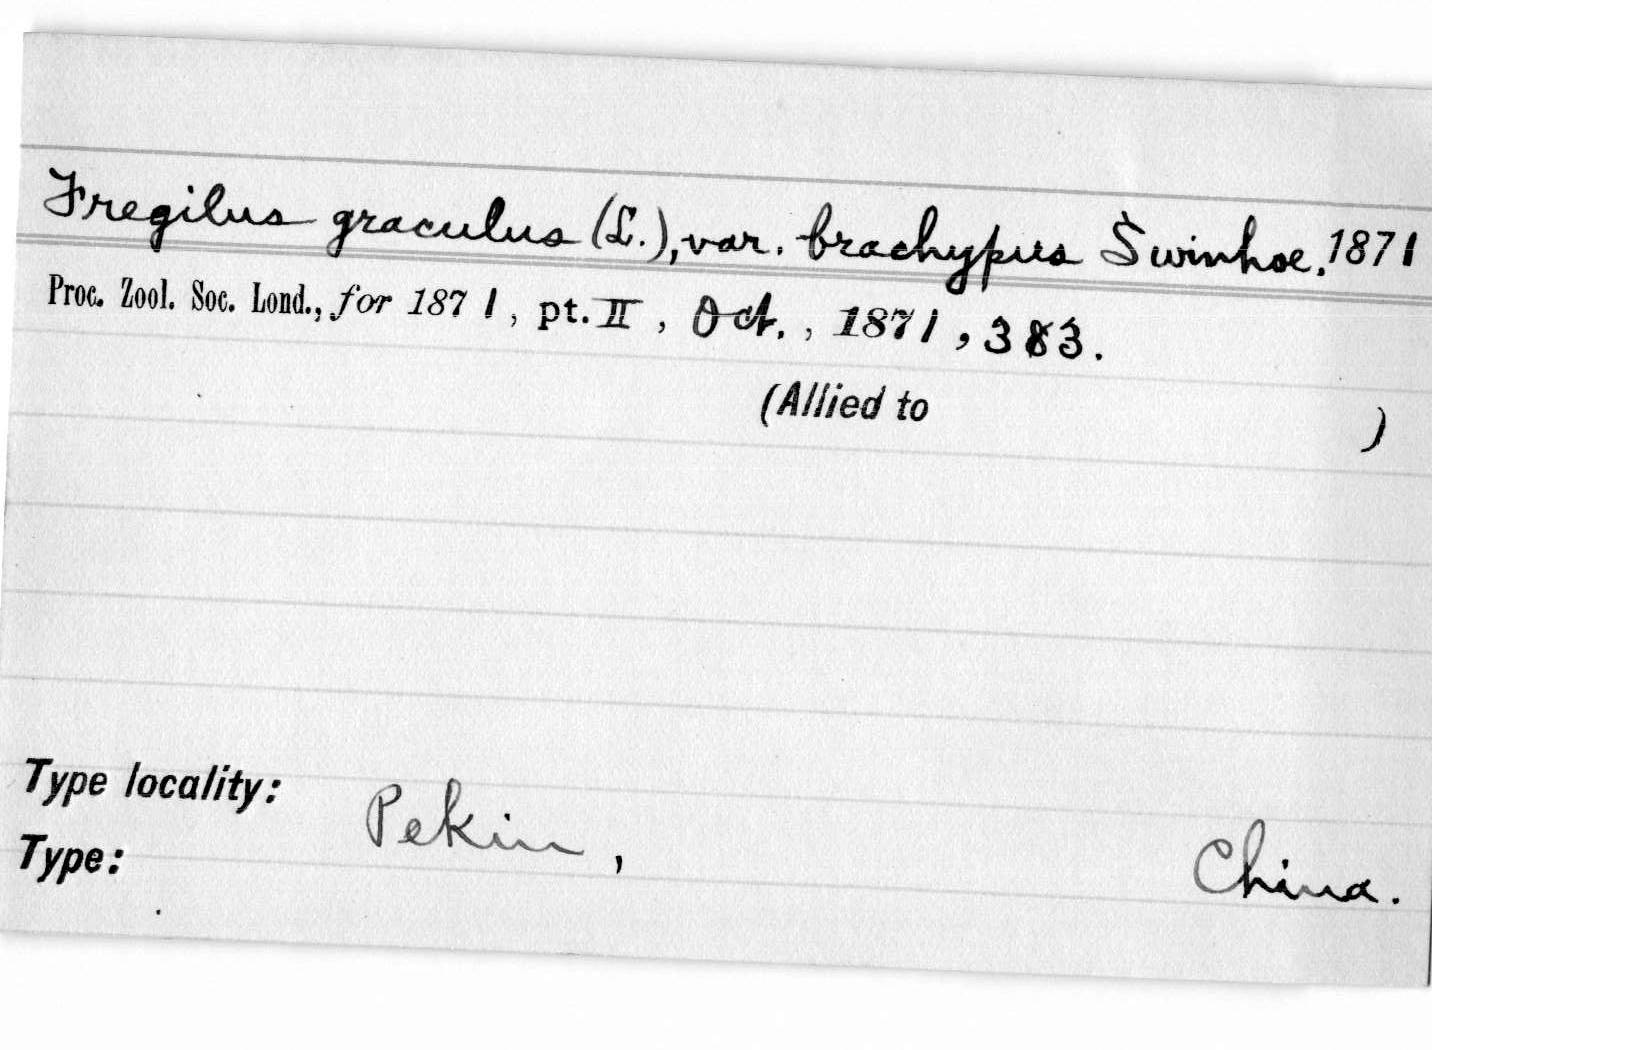 Fregilus graculus (L.), var. brachypus Swinhoe. 1871
Proc. Zool. Soc. Lond., for 1871, pt. II, Oct., 1871, 383.
(Allied to )
Type locality: Pekin, China.
Type: